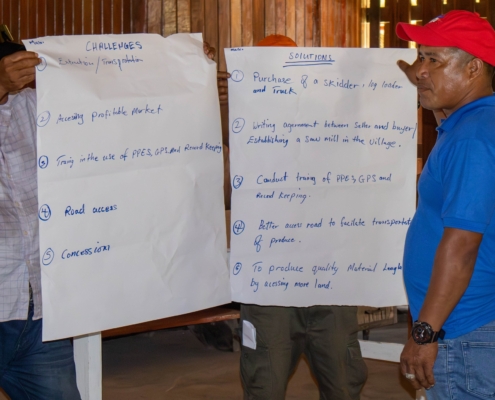 CHALLENGES
① Extraction/Transportation
② Accessing profitable Market
③ Traing in the use of PPES, GPS, and Record Keeping
④ Road access
⑤ Concessions
SOLUTIONS
① Purchase of a skidder, log loader
and Truck
② Writing agreement between seller and buyer/
Establishing a saw mill in the village.
③ Conduct traing of PPES, GPS and
Record Keeping.
④ Better access road to faciliate transportat
of produce.
⑤ To produce quality Material
by acessing more land.